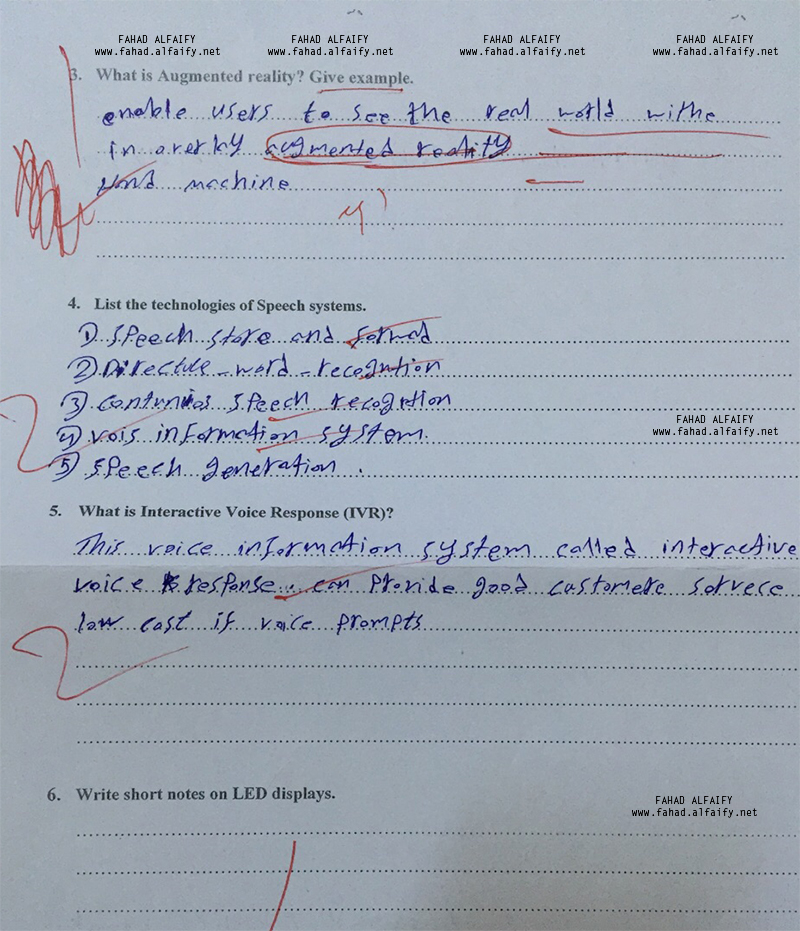 FAHAD ALFAIFY FAHAD ALFAIFY FAHAD ALFAIFY FAHAD ALFAIFY
www.fahad.alfaify.net www.fahad.alfaify.net www.fahad.alfaify.net www.fahad.alfaify.net
3. What is Augmented reality? Give example.
enable users to see the real world withe
in overlay augmented reality
machine
4. List the technologies of Speech systems.
1) Speech store and
2) word - recogntion
3) speech recogetion
FAHAD ALFAIFY
www.fahad.alfaify.net
4) vois information system.
5) speech generation.
5. What is Interactive Voice Response (IVR)?
This voice information system called interactive
voice response .. can provide good customere servece
low cost if voice prompts
6. Write short notes on LED displays.
FAHAD ALFAIFY
www.fahad.alfaify.net